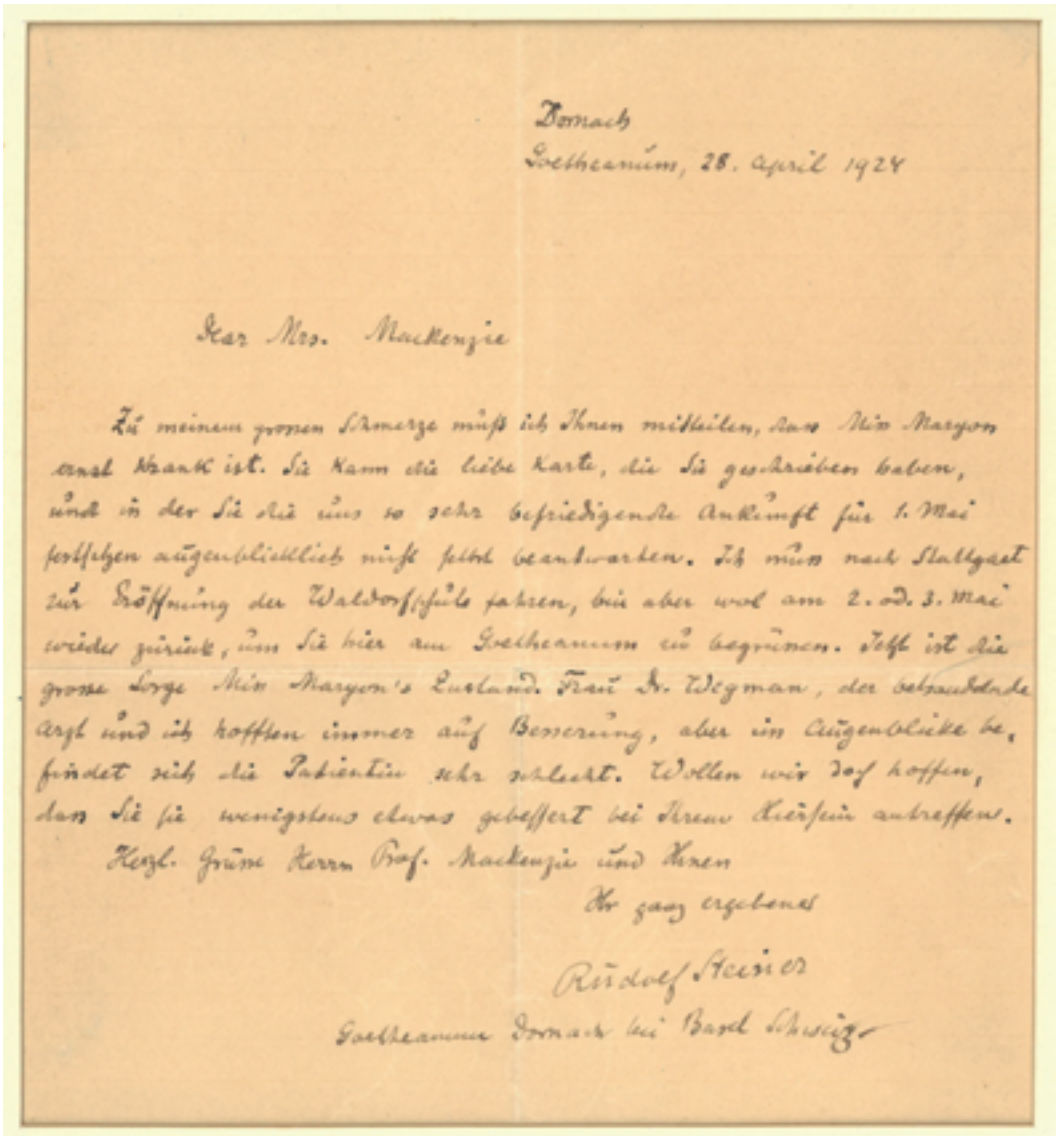 Dornach
Goetheanum, 28. April 1924
Dear Mrs. Mackenzie
Zu meinem grossen Schmerze muß ich Ihnen mitteilen, dass Miss Maryon
ernst krank ist. Sie kann die liebe Karte, die Sie geschrieben haben,
und in der Sie die uns so sehr befriedigende Ankunft für 1. Mai
festsetzen augenblicklich nicht selbst beantworten. Ich muss nach Stuttgart
zur Eröffnung der Waldorfschule fahren, bin aber wol am 2. od. 3. Mai
wieder zurück, um Sie hier am Goetheanum zu begrüssen. Jetzt ist die
grosse Sorge Miss Maryon's Zustand. Frau Dr. Wegman, der behandelnde
Arzt und ich hofften immer auf Besserung, aber im Augenblicke be,
findet sich die Patientin sehr schlecht. Wollen wir doch hoffen,
dass Sie sie wenigstens etwas gebessert bei Ihrem Hiersein antreffen.
Herzl. Grüsse Herrn Prof. Mackenzie und Ihnen
Ihr ganz ergebener
Rudolf Steiner
Goetheanum Dornach bei Basel Schweiz